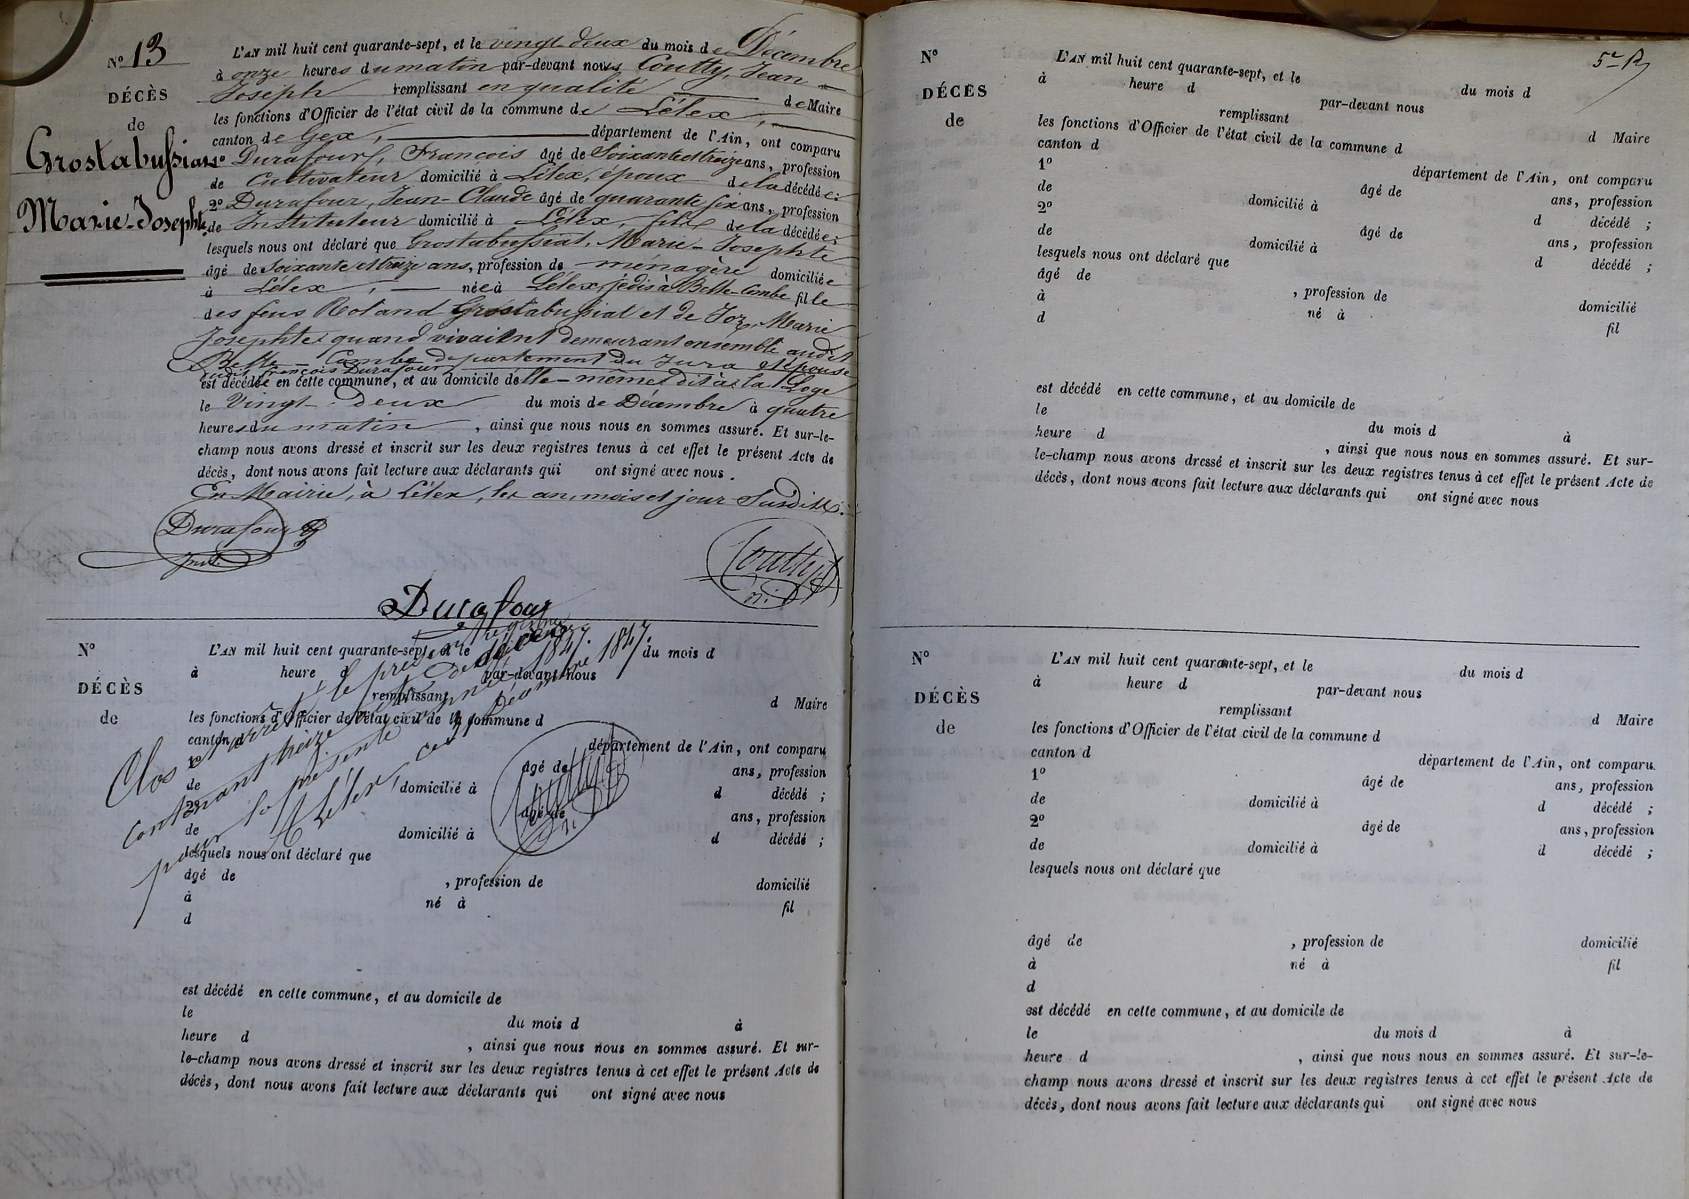 N° 13
DÉCÈS
de
Grostabussiat
Marie-Josephte
L'AN mil huit cent quarante-sept, et le vingt-deux du mois de Décembre
à onze heures du matin par-devant nous Coutty, Jean-
Joseph remplissant en qualité de Maire
les fonctions d'Officier de l'état civil de la commune de Lélex,
canton de Gex, département de l'Ain, ont comparu
1° Durafour, François âgé de Soixante et treize ans, profession
de Cultivateur domicilié à Lélex, époux de la décédée;
2° Durafour, Jean-Claude âgé de quarante six ans, profession
de Instituteur domicilié à Lélex, fils de la décédée;
lesquels nous ont déclaré que Grostabussiat, Marie-Josephte
âgé de Soixante et treize ans, profession de ménagère domiciliée
à Lélex, née à Belle-Combe fille
des feus Roland Grostabussiat et de Joz, Marie
Josephte quand vivaient demeurant ensemble audit
Belle-Combe département du Jura et épouse
dudit François Durafour
est décédée en cette commune, et au domicile d'elle-même dit à la Loge
le Vingt-deux du mois de Décembre à quatre
heures du matin, ainsi que nous nous en sommes assuré. Et sur-le-
champ nous avons dressé et inscrit sur les deux registres tenus à cet effet le présent Acte de
décès, dont nous avons fait lecture aux déclarants qui ont signé avec nous.
En Mairie, à Lélex, les an, mois et jour Susdits.
Durafour
Coutty
Durafour
N°
DÉCÈS
de
L'AN mil huit cent quarante-sept, et le du mois d
à heure d par-devant nous
remplissant d Maire
les fonctions d'Officier de l'état civil de la commune d
canton d département de l'Ain, ont comparu
1° âgé de ans, profession
de domicilié à d décédé ;
2° âgé de ans, profession
de domicilié à d décédé ;
lesquels nous ont déclaré que
âgé de , profession de domicilié
à né à fil
d
Clos et arrêté le présent registre
contenant treize actes de décès
pour la présente année 1847.
A Lélex, ce 31 Décembre 1847.
est décédé en cette commune, et au domicile de
le du mois d à
heure d , ainsi que nous nous en sommes assuré. Et sur-
le-champ nous avons dressé et inscrit sur les deux registres tenus à cet effet le présent Acte de
décès, dont nous avons fait lecture aux déclarants qui ont signé avec nous
N°
DÉCÈS
de
L'AN mil huit cent quarante-sept, et le du mois d
à heure d par-devant nous
remplissant d Maire
les fonctions d'Officier de l'état civil de la commune d
canton d département de l'Ain, ont comparu
1° âgé de ans, profession
de domicilié à d décédé ;
2° âgé de ans, profession
de domicilié à d décédé ;
lesquels nous ont déclaré que
âgé de , profession de domicilié
à né à fil
d
est décédé en cette commune, et au domicile de
le du mois d à
heure d , ainsi que nous nous en sommes assuré. Et sur-
le-champ nous avons dressé et inscrit sur les deux registres tenus à cet effet le présent Acte de
décès, dont nous avons fait lecture aux déclarants qui ont signé avec nous
N°
DÉCÈS
de
L'AN mil huit cent quarante-sept, et le du mois d
à heure d par-devant nous
remplissant d Maire
les fonctions d'Officier de l'état civil de la commune d
canton d département de l'Ain, ont comparu
1° âgé de ans, profession
de domicilié à d décédé ;
2° âgé de ans, profession
de domicilié à d décédé ;
lesquels nous ont déclaré que
âgé de , profession de domicilié
à né à fil
d
est décédé en cette commune, et au domicile de
le du mois d à
heure d , ainsi que nous nous en sommes assuré. Et sur-le-
champ nous avons dressé et inscrit sur les deux registres tenus à cet effet le présent Acte de
décès, dont nous avons fait lecture aux déclarants qui ont signé avec nous